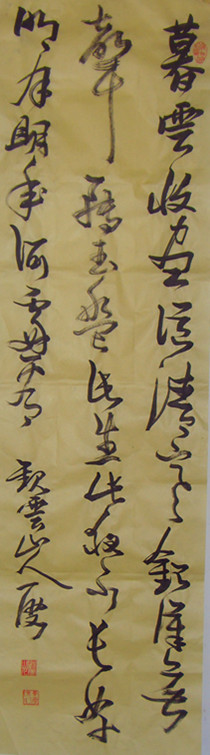 暮雲收盡溢清寒銀漢無
聲轉玉盤此生此夜不長好
明月明年何處看 觀雲山人